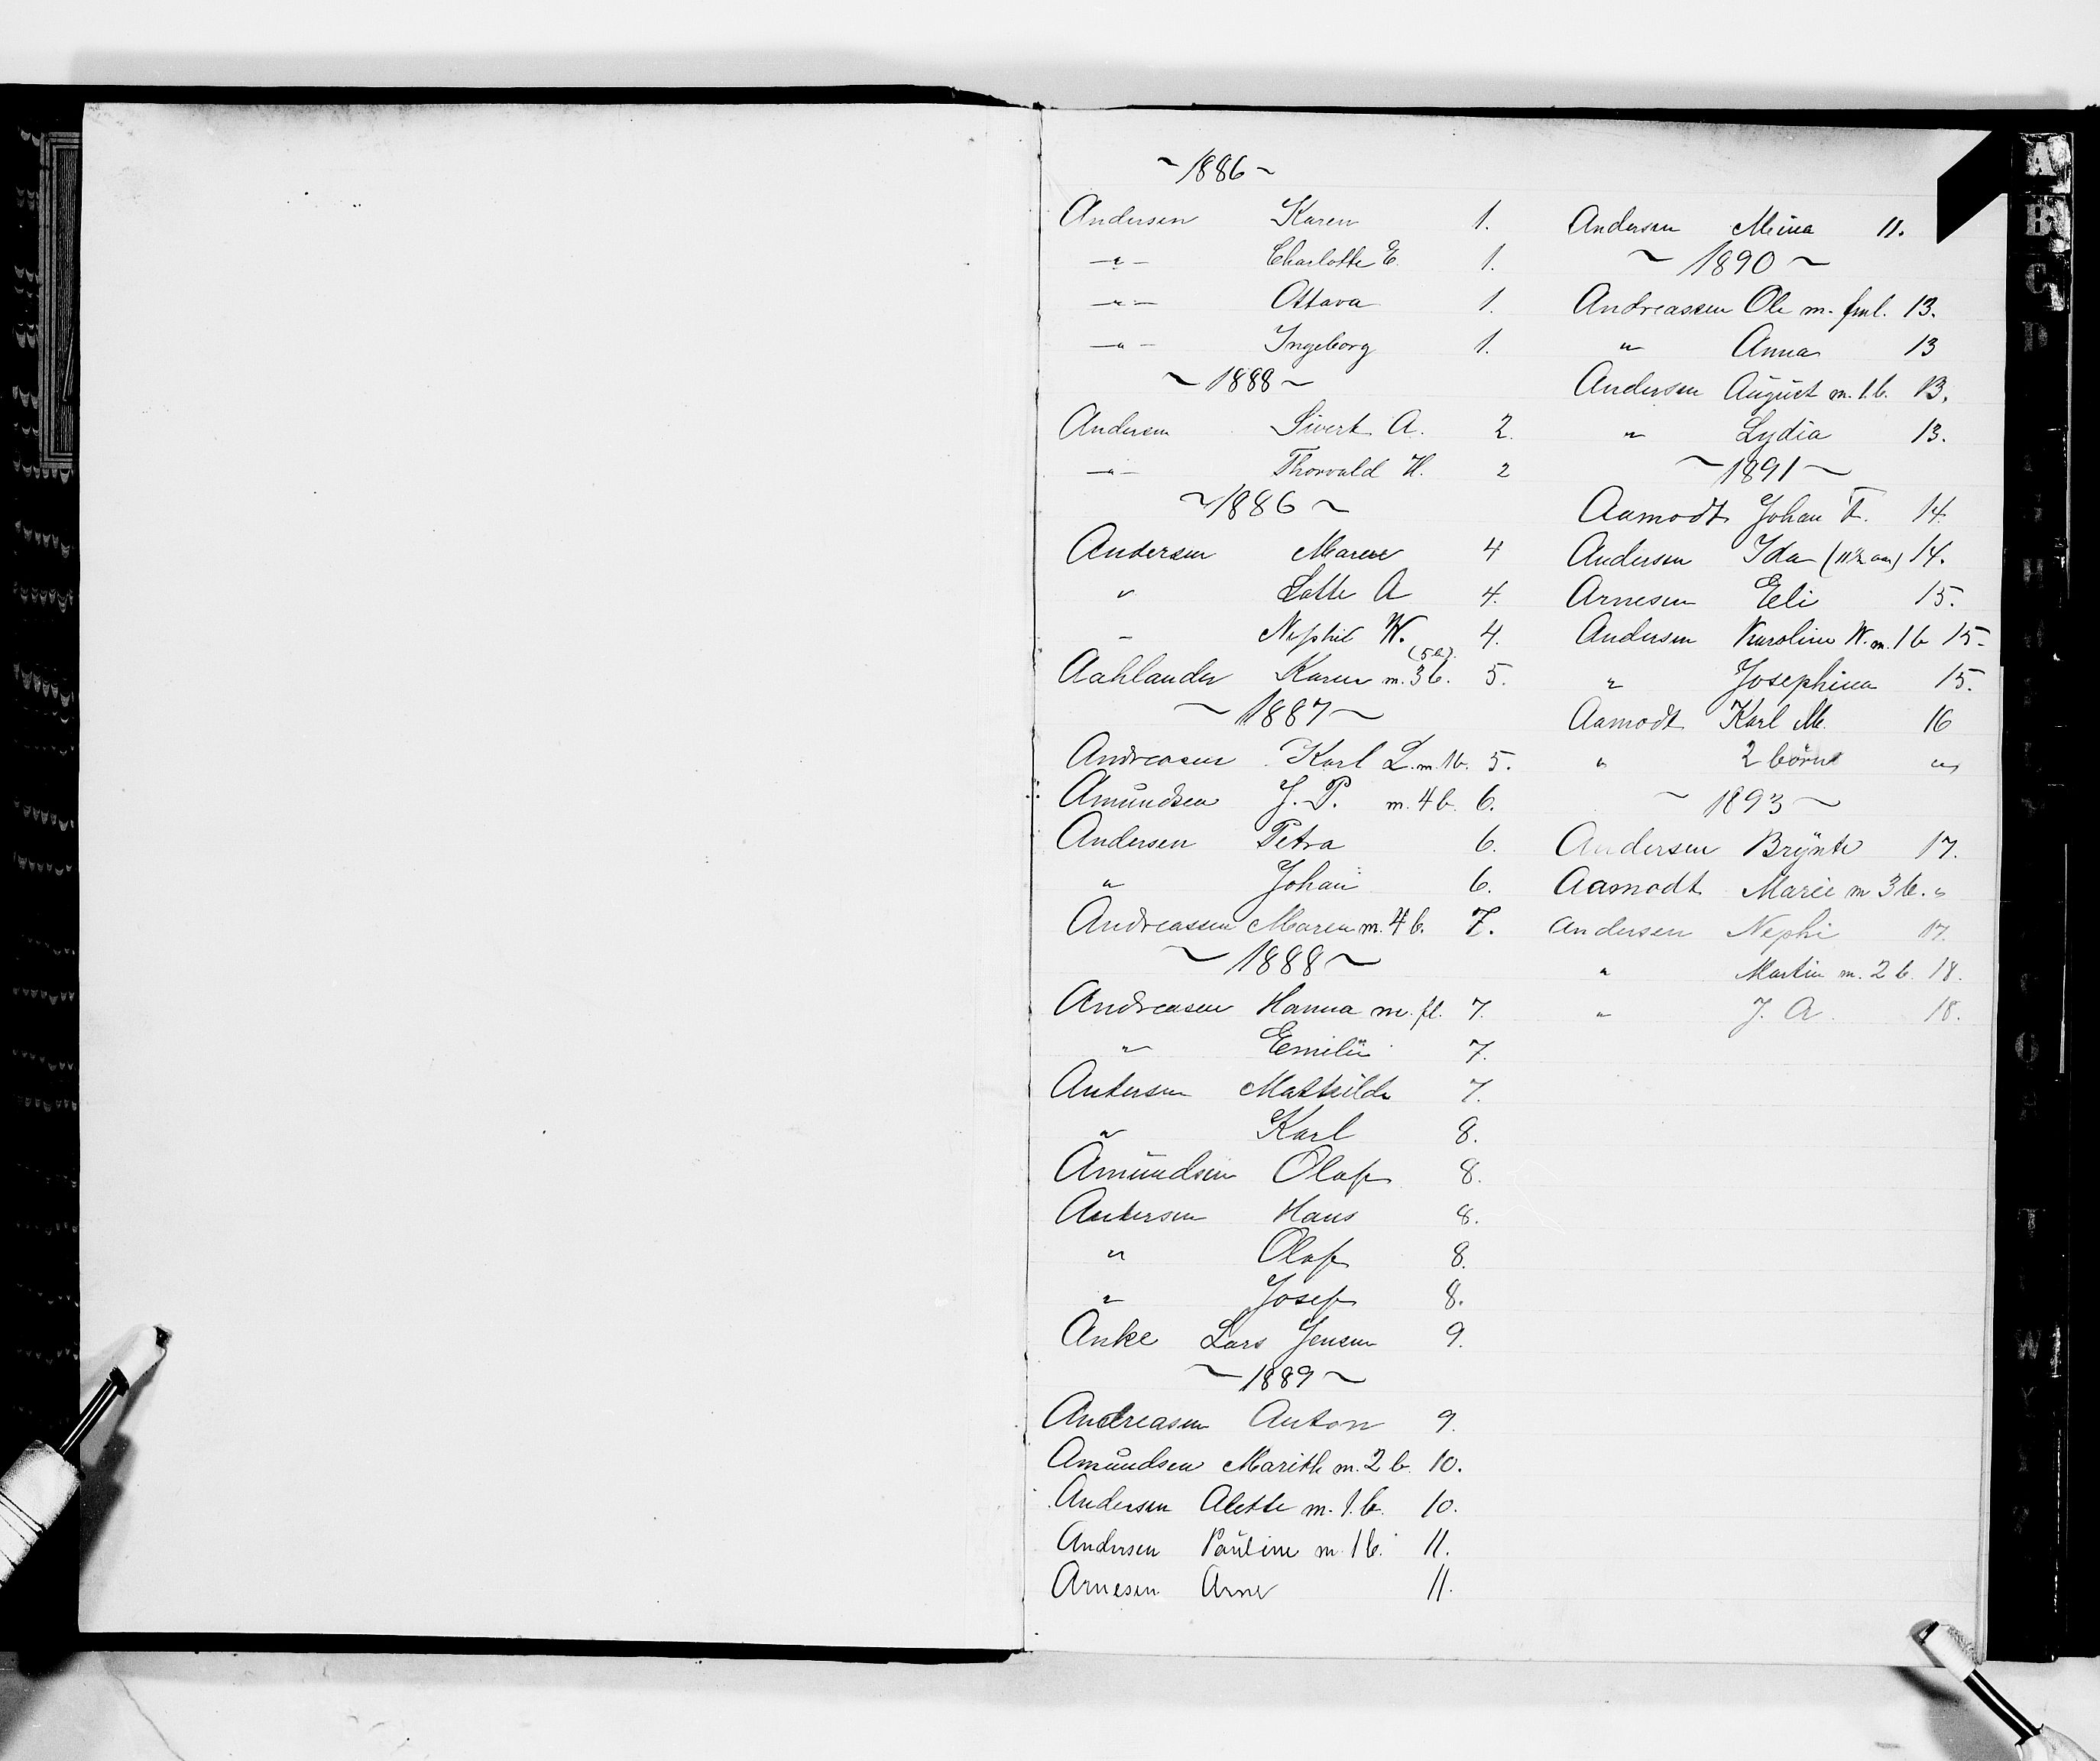 ~ 1886 ~
Andersen Karen 1.
—"— Charlotte E. 1.
—"— Ottava 1.
—"— Ingeborg 1.
~ 1888 ~
Andersen Sivert A. 2.
—"— Thorvald H. 2
~ 1886 ~
Andersen Maren 4
" Lotte A 4.
" Nephil W. 4.
(5 b).
Aahlander Karen m. 3 b. 5.
~ 1887 ~
Andreasen Karl L. m. 1b. 5.
Amundsen J. P. m. 4 b. 6.
Andersen Petra 6.
" Johan 6.
Andreassen Maren m. 4 b. 7.
~ 1888 ~
Andreasen Hanna m. fl. 7.
" Emilie 7.
Andersen Mathilde 7.
" Karl 8.
Amundsen Olaf 8.
Andersen Hans 8.
" Olaf 8.
" Josef 8.
Anke Lars Jensen 9.
~ 1889 ~
Andreasen Anton 9.
Amundsen Marith m. 2 b. 10.
Andersen Alette m. 1. b. 10.
Andersen Pauline m. 1 b. 11.
Arnesen Arne 11.
Andersen Mina 11.
~ 1890 ~
Andreassen Ole m. fml. 13.
" Anna 13
Andersen August m. 1.b. 13.
" Lydia 13.
~ 1891 ~
Aamodt Johan F. 14.
Andersen Ida 14.
Arnesen Eli 15.
Andersen Karoline W. m. 1 b 15.
" Josephina 15.
Aamodt Karl M. 16
" 2 börn "
~ 1893 ~
Andersen Brynte 17.
Aamodt Marie m 3 b. "
Andersen Nephi 17.
" Martin m. 2 b. 18.
" J. A. 18.
A
B
C
D
H
O
T
W